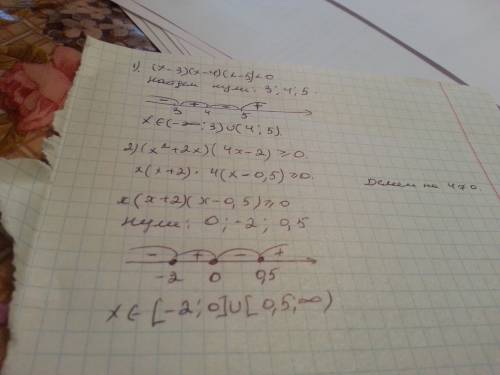 1). (x-3)(x-4)(x-5)<0
Найдем нули: 3; 4; 5.
- + - +
3 4 5
x∈(-∞; 3)∪(4; 5).
2) (x²+2x)(4x-2)≥0.
x(x+2)·4(x-0,5)≥0. Делим на 4≠0.
x(x+2)(x-0,5)≥0
Нули: 0; -2; 0,5
- + - +
-2 0 0,5
x∈[-2; 0]∪[0,5; ∞)